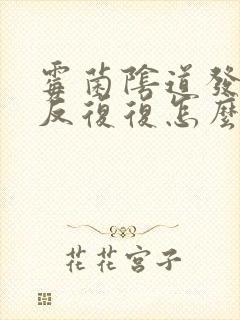 霉菌陰道發
反復復怎麼
花花宮子